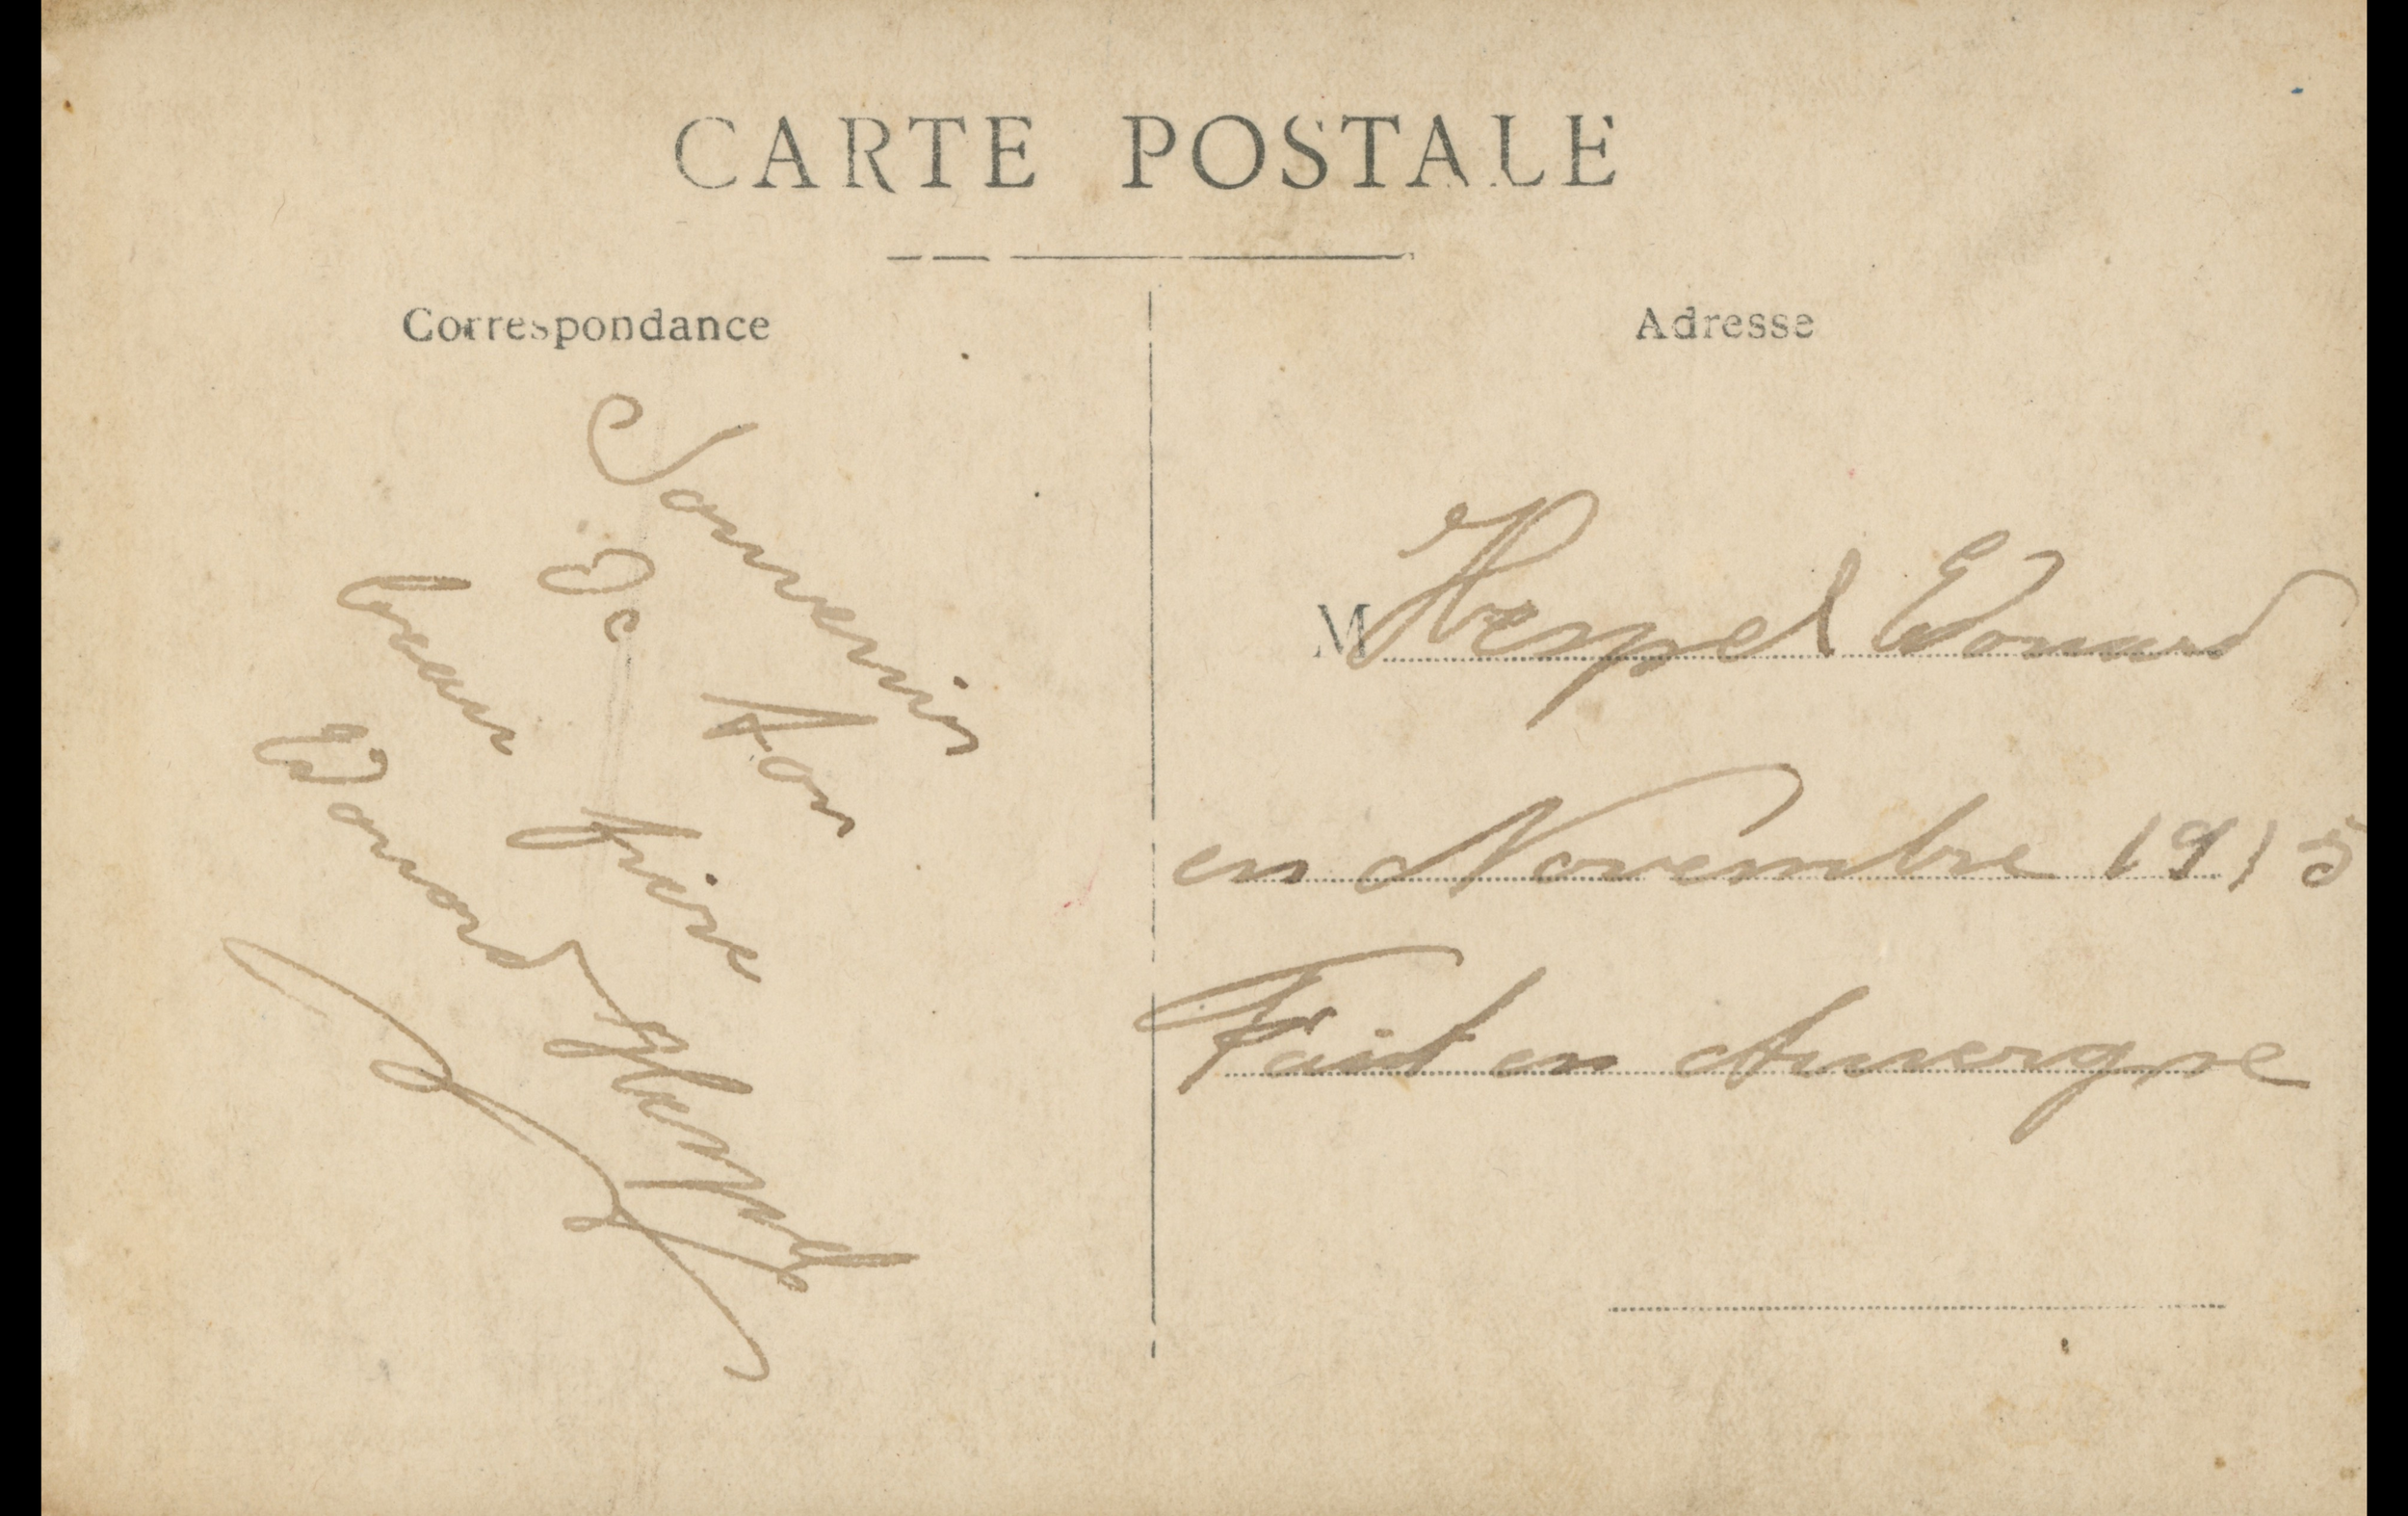 CARTE POSTALE
Correspondance
Souvenir
De ton
beau frère
Edouard Herpel
Adresse
M Herpel Edouard
en Novembre 1915
Fait en Auvergne